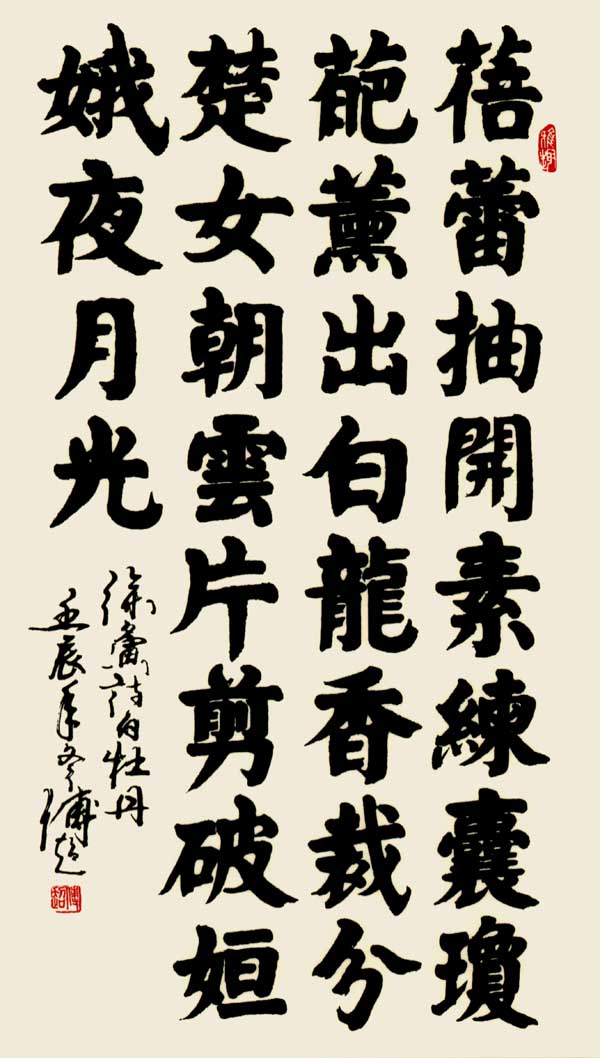 蓓蕾抽開素練囊瓊
葩薰出白龍香裁分
楚女朝雲片剪破姮
娥夜月光
徐夤詩白牡丹
壬辰年冬傅超